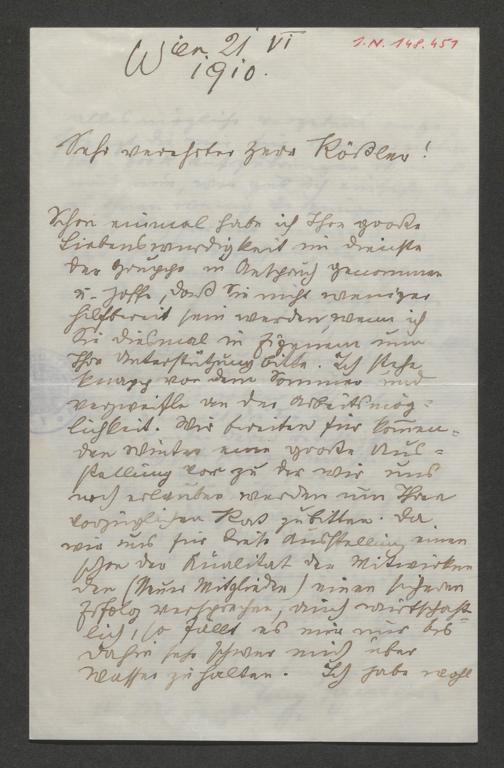 I.N. 148.451
Wien 21 VI
1910.
Sehr verehrter Herr Rößler!
Schon einmal habe ich Ihre große
Liebenswürdigkeit im Dienste
der Gruppe in Anspruch genommen
u. hoffe, daß Sie nicht weniger
hilfbereit sein werden, wenn ich
Sie diesmal in eigenem um
Ihre Unterstützung bitte. Ich stehe
knapp vor dem Sommer und
verzweifle an der Arbeitsmög=
lichkeit. Wir bereiten für kommen=
den Winter eine große Aus=
stellung vor zu der wir uns
noch erlauben werden um Ihren
vorzüglichen Rat zu bitten. Da
wir uns für diese Ausstellung einen
schon der Qualität der Mitwirken
den (Neuer Mitglieder) einen sicheren
Erfolg versprechen, auch wirtschaft=
lich, so fällt es mir nur bis
dahin sehr schwer mich über
Wasser zu halten. Ich habe wohl